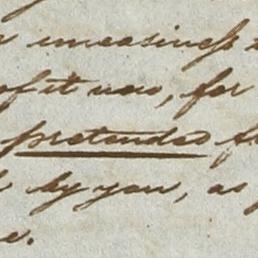 uneasiness
of it now, for
pretended
by you, as